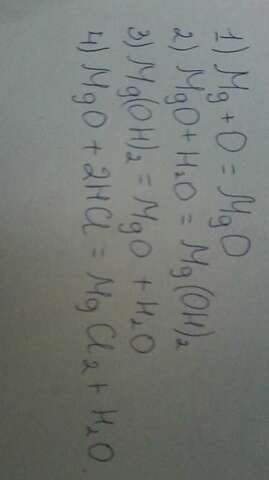 1) Mg + O = MgO
2) MgO + H₂O = Mg(OH)₂
3) Mg(OH)₂ = MgO + H₂O
4) MgO + 2HCl = MgCl₂ + H₂O.